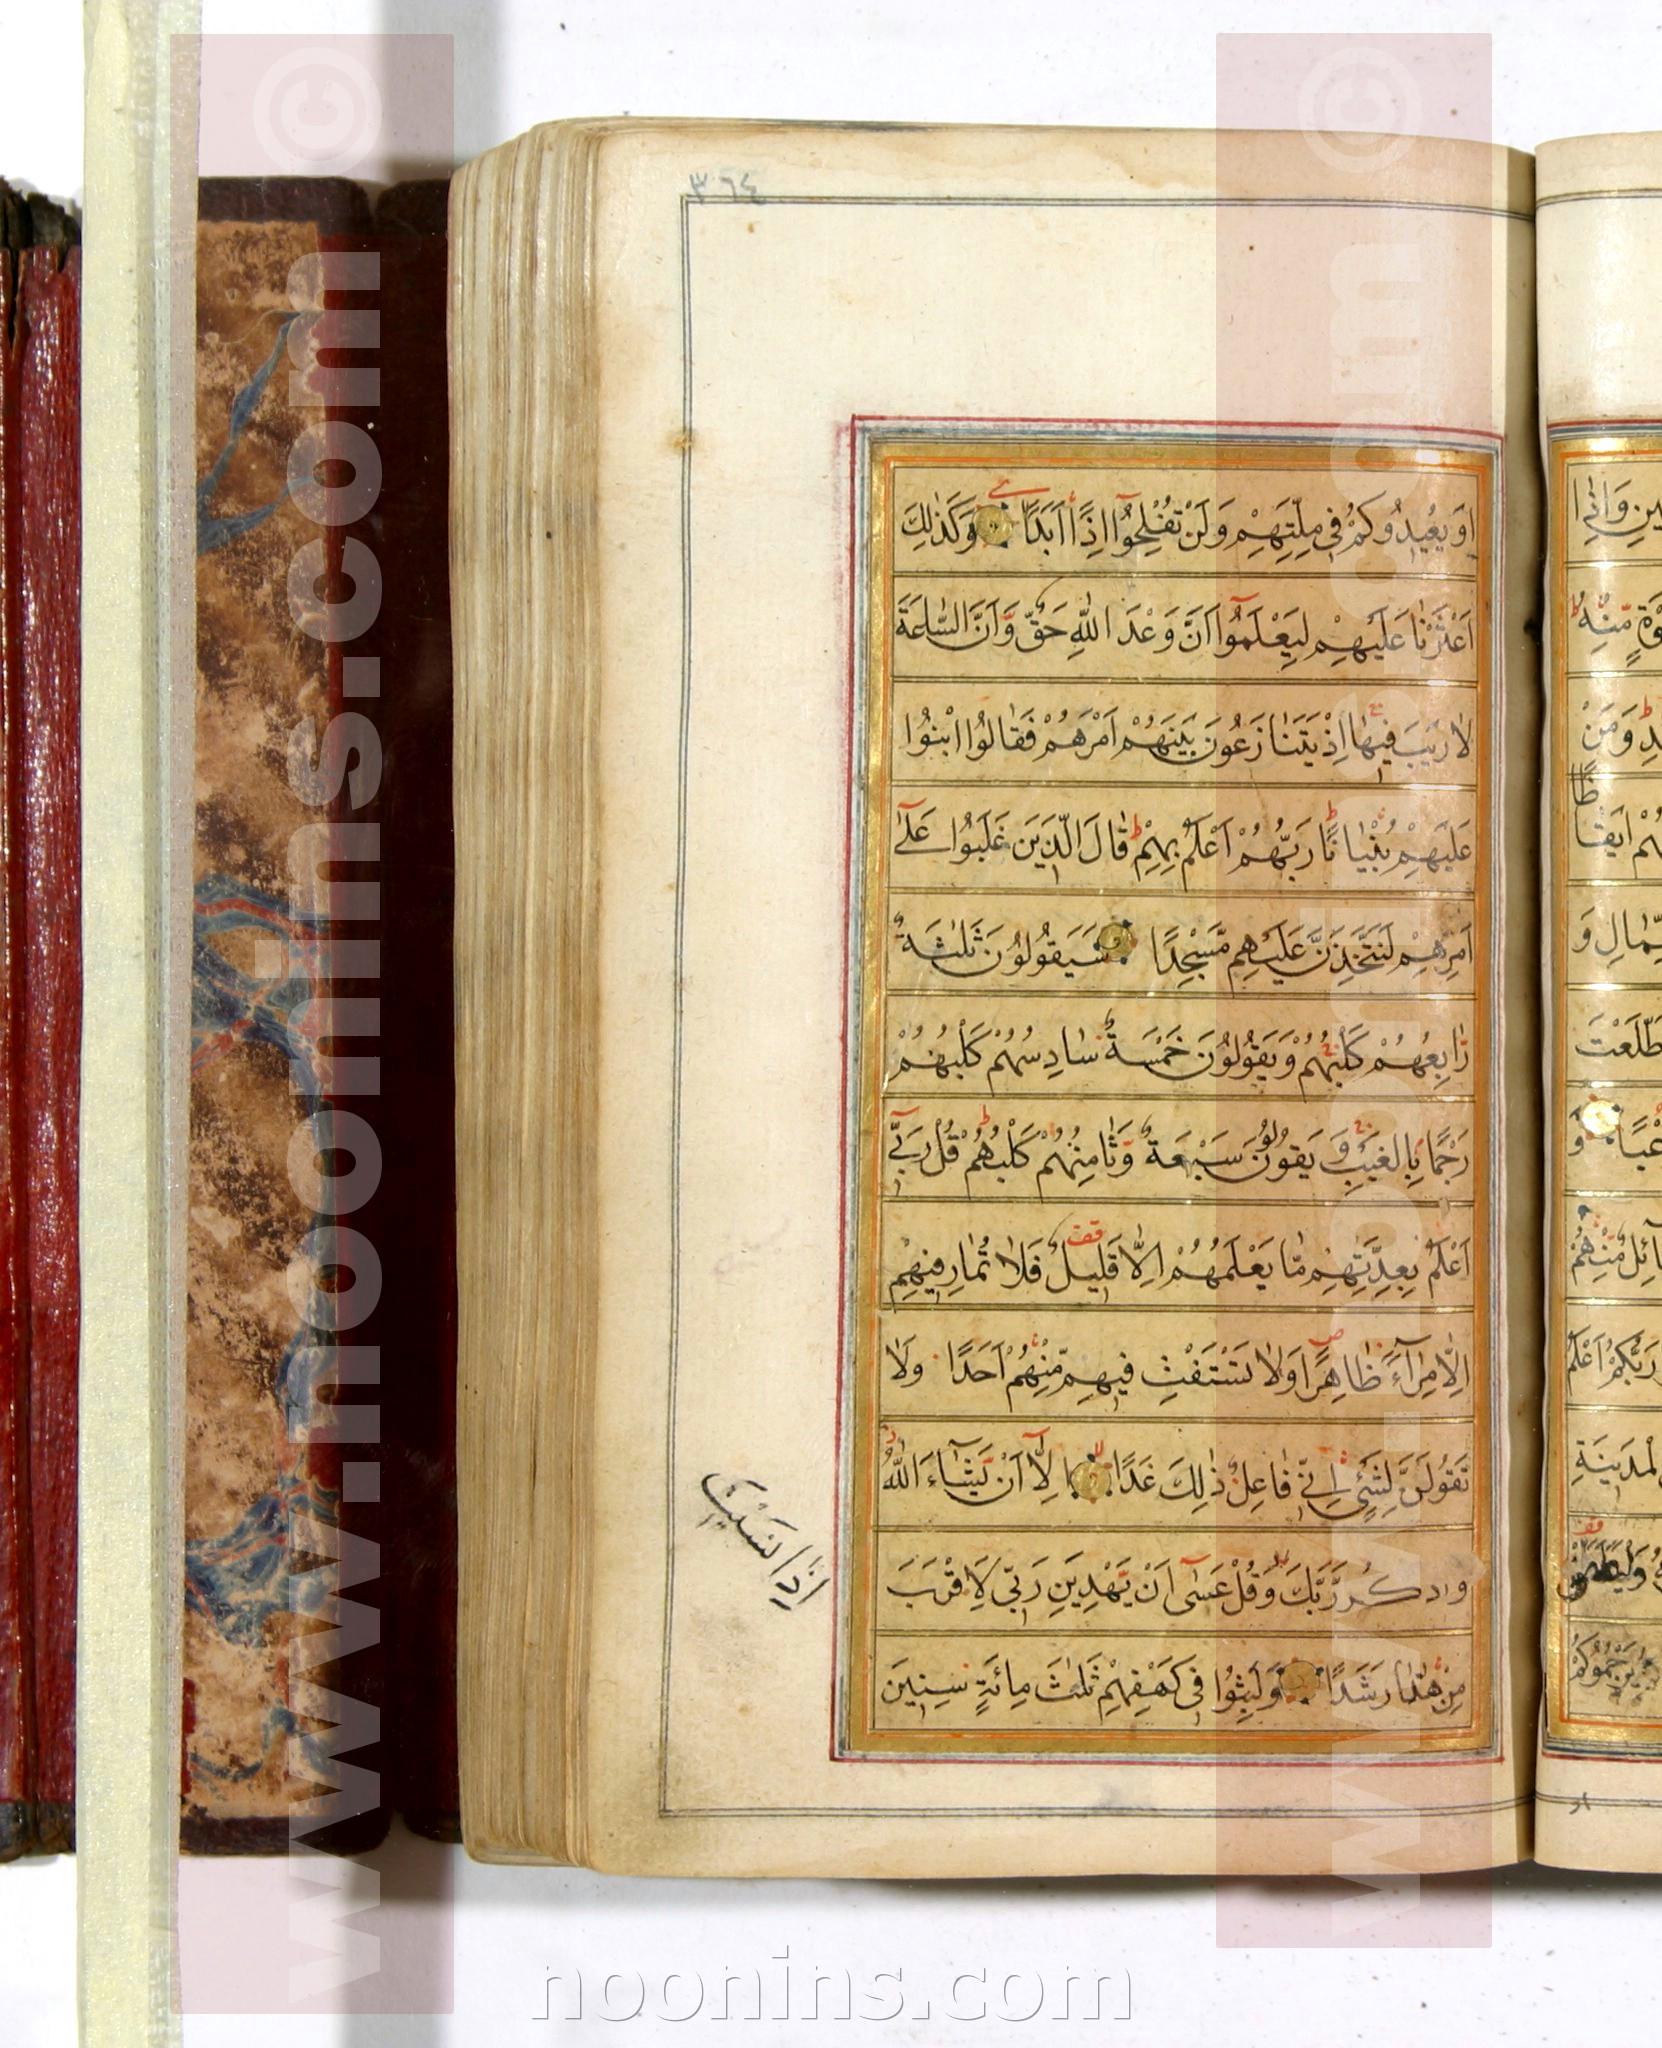 ٣٦٤
اَوْ يُعِيدُوكُمْ فِى مِلَّتِهِمْ وَلَنْ تُفْلِحُوٓا اِذًا اَبَدًا وَكَذٰلِكَ
اَعْثَرْنَا عَلَيْهِمْ لِيَعْلَمُوٓا اَنَّ وَعْدَ اللّٰهِ حَقٌّ وَّاَنَّ السَّاعَةَ
لَا رَيْبَ فِيهَا اِذْ يَتَنَازَعُونَ بَيْنَهُمْ اَمْرَهُمْ فَقَالُوا ابْنُوا
عَلَيْهِمْ بُنْيَانًا رَبُّهُمْ اَعْلَمُ بِهِمْ قَالَ الَّذِينَ غَلَبُوا عَلٰٓى
اَمْرِهِمْ لَنَتَّخِذَنَّ عَلَيْهِمْ مَّسْجِدًا سَيَقُولُونَ ثَلٰثَةٌ
رَّابِعُهُمْ كَلْبُهُمْ وَيَقُولُونَ خَمْسَةٌ سَادِسُهُمْ كَلْبُهُمْ
رَجْمًا بِالْغَيْبِ وَ يَقُولُونَ سَبْعَةٌ وَّثَامِنُهُمْ كَلْبُهُمْ قُلْ رَبِّىٓ
اَعْلَمُ بِعِدَّتِهِمْ مَّا يَعْلَمُهُمْ اِلَّا قَلِيلٌ فَلَا تُمَارِ فِيهِمْ
اِلَّا مِرَآءً ظَاهِرًا وَلَا تَسْتَفْتِ فِيهِمْ مِّنْهُمْ اَحَدًا وَلَا
تَقُولَنَّ لِشَىْءٍ اِنِّى فَاعِلٌ ذٰلِكَ غَدًا اِلَّآ اَنْ يَّشَآءَ اللّٰهُ
وَاذْكُر رَّبَّكَ وَقُلْ عَسٰٓى اَنْ يَّهْدِيَنِ رَبِّى لِاَقْرَبَ
مِنْ هٰذَا رَشَدًا وَلَبِثُوا فِى كَهْفِهِمْ ثَلٰثَ مِائَةٍ سِنِينَ
اِذَا نَسِيْتَ
www.noonins.com ©
www.noonins.com ©
noonins.com